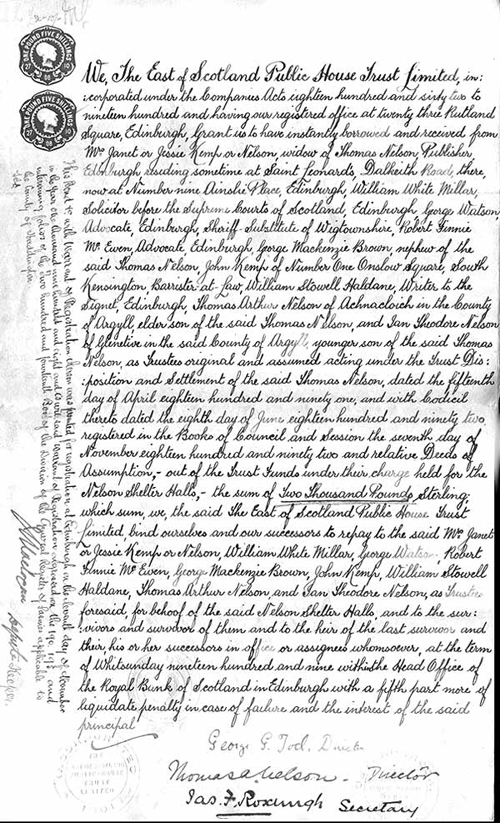 We, The East of Scotland Public House Trust Limited, in:
:corporated under the Companies Acts eighteen hundred and sixty two to
nineteen hundred and having our registered office at twenty three Rutland
Square, Edinburgh, Grant us to have instantly borrowed and received from
Mrs Janet or Jessie Kemp or Nelson, widow of Thomas Nelson, Publisher,
Edinburgh residing sometime at Saint Leonards, Dalkeith Road, there,
now at Number nine Ainslie Place, Edinburgh, William White Millar,
Solicitor before the Supreme Courts of Scotland, Edinburgh, George Watson
Advocate, Edinburgh, Sheriff-Substitute of Wigtownshire, Robert Finnie
Mc Ewen, Advocate, Edinburgh, George Mackenzie Brown, nephew of the
said Thomas Nelson, John Kemp of Number One Onslow Square, South
Kensington, Barrister at Law, William Stowell Haldane, Writer to the
Signet, Edinburgh, Thomas Arthur Nelson of Achnacloich in the County
of Argyll, elder son of the said Thomas Nelson, and Ian Theodore Nelson
of Glenetive in the said County of Argyll, younger son of the said Thomas
Nelson, as Trustees original and assumed acting under the Trust Dis:
:position and Settlement of the said Thomas Nelson, dated the fifteenth
day of April eighteen hundred and ninety one, and with Codicil
thereto dated the eighth day of June eighteen hundred and ninety two,
registered in the Books of Council and Session the seventh day of
November eighteen hundred and ninety two and relative Deeds of
Assumption, - out of the Trust Funds under their charge held for the
Nelson Shelter Halls, - the sum of Two Thousand Pounds Sterling;
which sum, we, the said The East of Scotland Public House Trust
Limited, bind ourselves and our successors to repay to the said Mrs Janet
or Jessie Kemp or Nelson, William White Millar, George Watson, Robert
Finnie Mc Ewen, George Mackenzie Brown, John Kemp, William Stowell
Haldane, Thomas Arthur Nelson, and Ian Theodore Nelson, as Trustees
foresaid, for behoof of the said Nelson Shelter Halls, and to the sur:
:vivors and survivor of them and to the heir of the last survivor and
their, his or her successors in office or assignees whomsoever, at the term
of Whitsunday nineteen hundred and nine within the Head Office of
the Royal Bank of Scotland in Edinburgh with a fifth part more of
liquidate penalty in case of failure and the interest of the said
principal
George G. Tod, Director
Thomas A Nelson - Director
Jas. F. Roxburgh Secretary